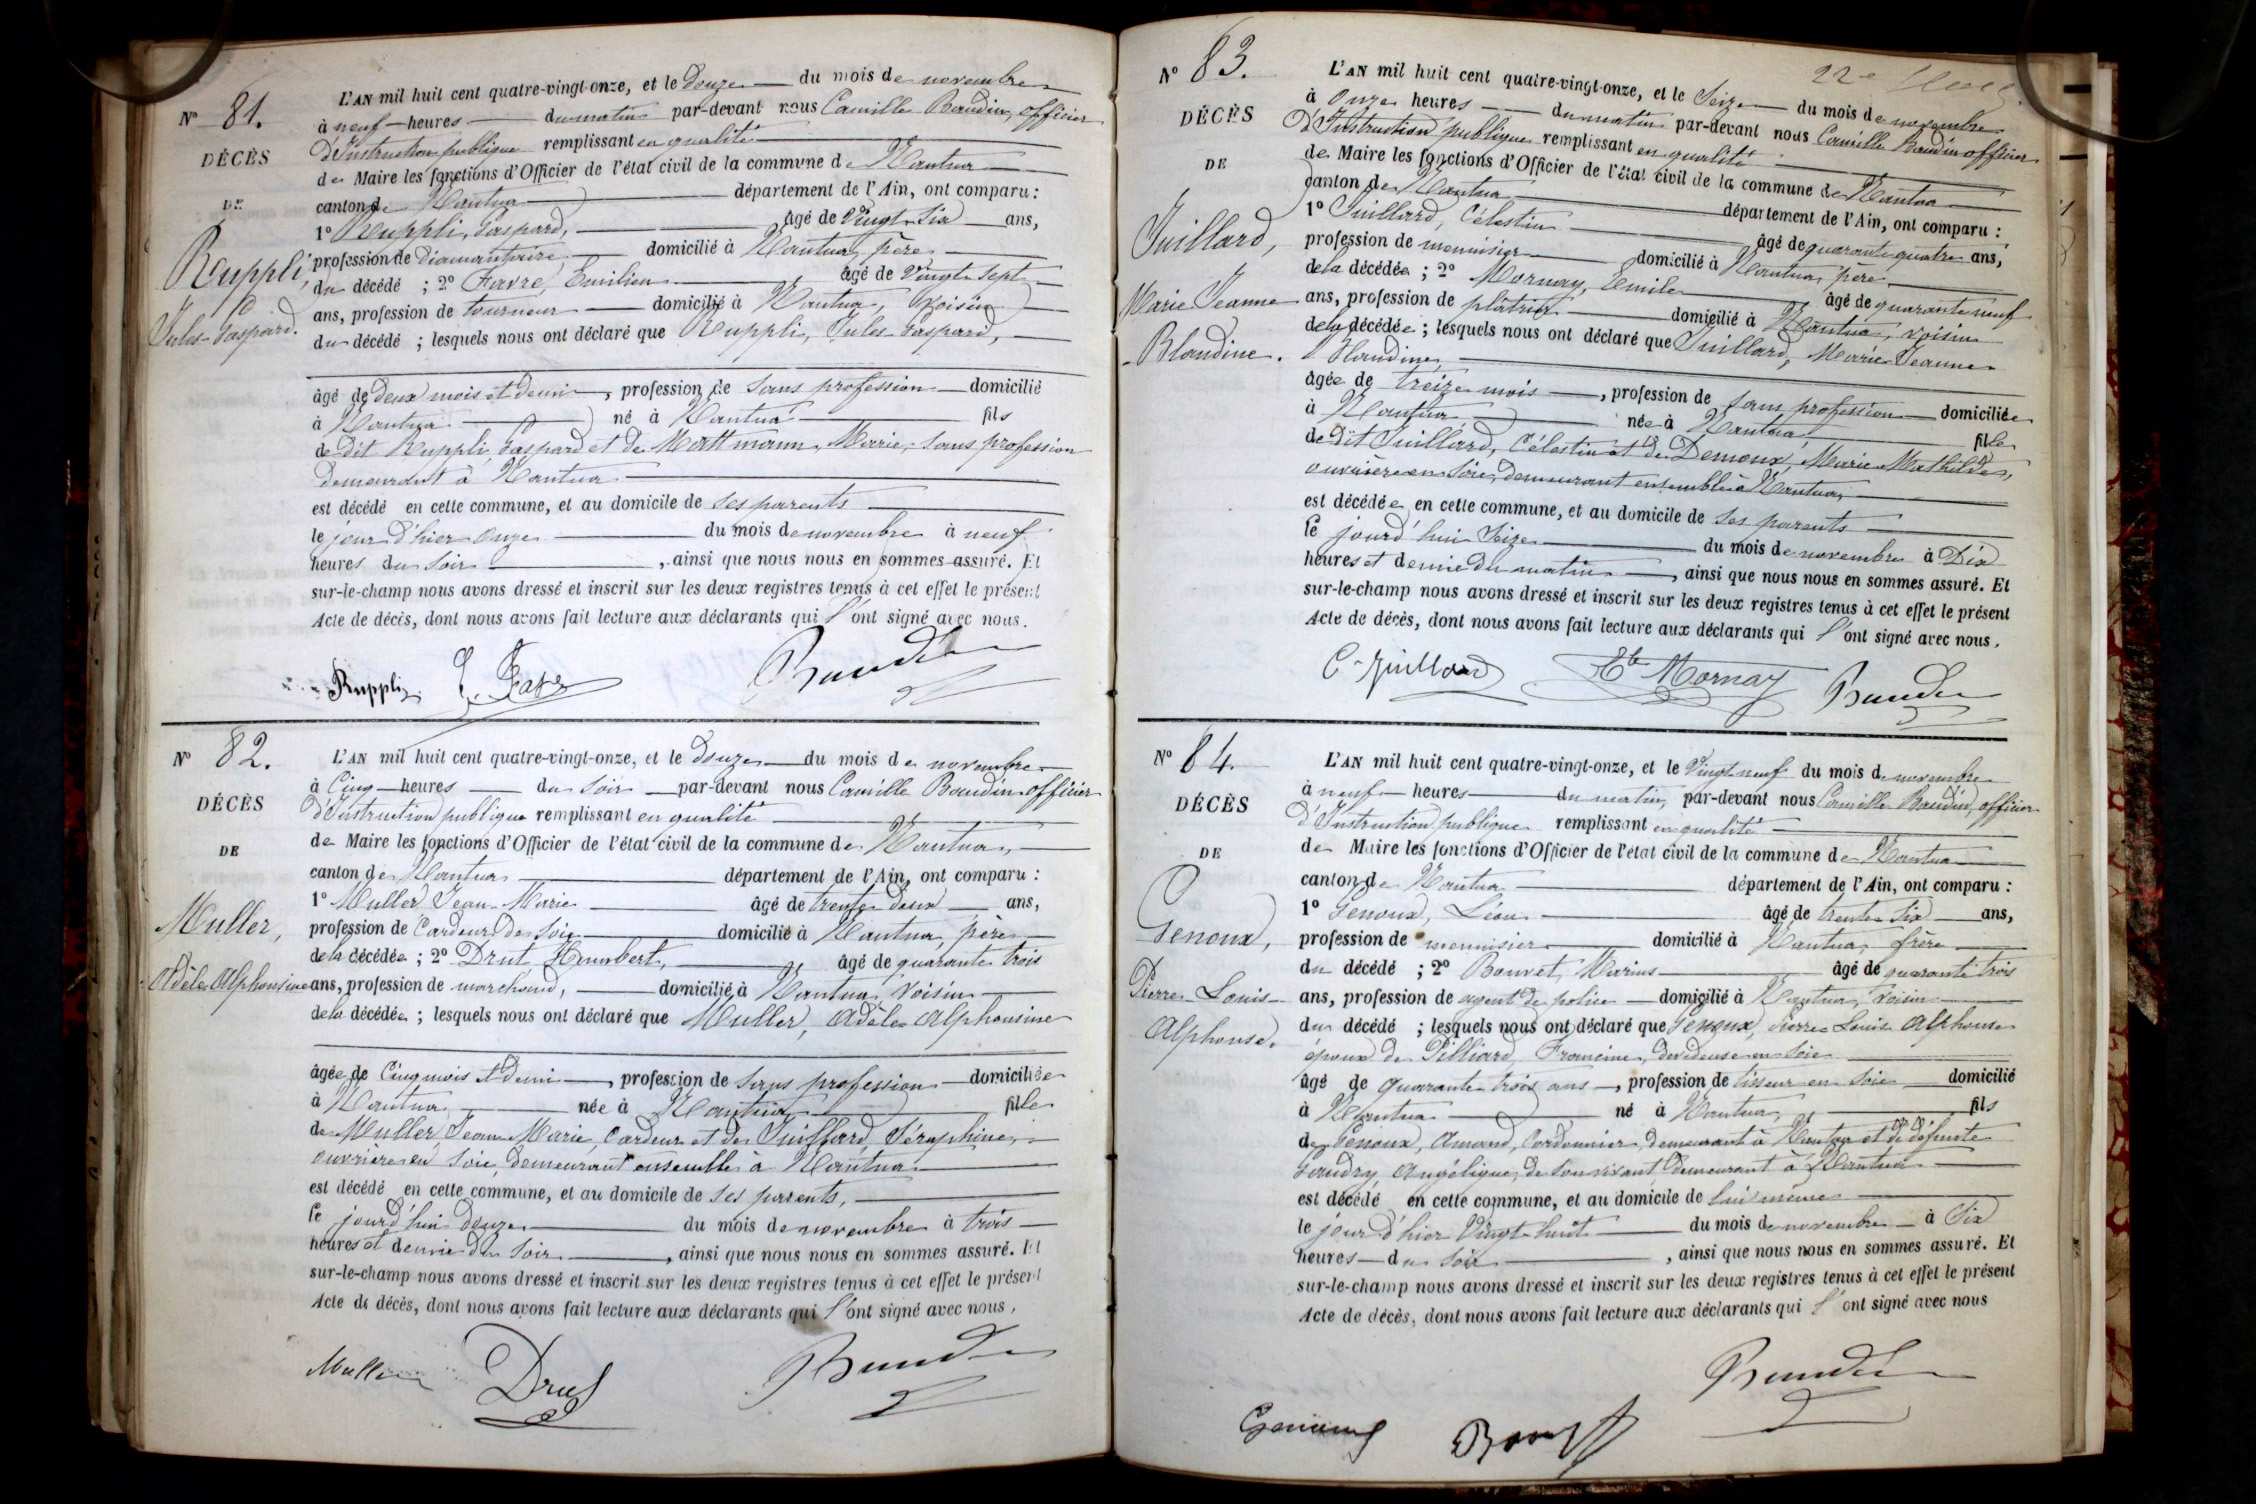 N° 81.
DÉCÈS
DE
Ruppli,
Jules-Gaspard.
L'AN mil huit cent quatre-vingt-onze, et le Douze du mois de novembre
à neuf heures du matin par-devant nous Camille Baudin, officier
d'Instruction publique remplissant en qualité
de Maire les fonctions d'Officier de l'état civil de la commune de Nantua
canton de Nantua département de l'Ain, ont comparu :
1° Ruppli, Gaspard, âgé de Vingt-Six ans,
profession de diamantaire domicilié à Nantua, père
du décédé ; 2° Favre, Emilien âgé de Vingt-sept
ans, profession de tourneur domicilié à Nantua, Voisin
du décédé ; lesquels nous ont déclaré que Ruppli, Jules-Gaspard,
âgé de deux mois et demi, profession de Sans profession domicilié
à Nantua né à Nantua fils
de Dit Ruppli, Gaspard et de Mattmann, Marie, sans profession
demeurant à Nantua
est décédé en cette commune, et au domicile de ses parents
le jour d'hier onze du mois de novembre à neuf
heures du soir, ainsi que nous nous en sommes assuré. Et
sur-le-champ nous avons dressé et inscrit sur les deux registres tenus à cet effet le présent
Acte de décès, dont nous avons fait lecture aux déclarants qui l'ont signé avec nous.
Ruppli E. Favre Baudin
N° 82.
DÉCÈS
DE
Muller,
Adèle Alphonsine
L'AN mil huit cent quatre-vingt-onze, et le douze du mois de novembre
à Cinq heures du Soir par-devant nous Camille Baudin officier
d'Instruction publique remplissant en qualité
de Maire les fonctions d'Officier de l'état civil de la commune de Nantua,
canton de Nantua département de l'Ain, ont comparu :
1° Muller Jean-Marie âgé de trente deux ans,
profession de Cardeur de Soie domicilié à Nantua, père
de la décédée ; 2° Drut Humbert, âgé de quarante trois
ans, profession de marchand, domicilié à Nantua, Voisin
de la décédée ; lesquels nous ont déclaré que Muller, Adèle Alphonsine
âgée de Cinq mois et demi, profession de Sans profession domiciliée
à Nantua née à Nantua fille
de Muller, Jean-Marie, Cardeur et de Juillard, Séraphine,
ouvrière en Soie, demeurant ensemble à Nantua
est décédé en cette commune, et au domicile de ses parents,
le jourd'hui douze du mois de novembre à trois
heures et demie du Soir, ainsi que nous nous en sommes assuré. Et
sur-le-champ nous avons dressé et inscrit sur les deux registres tenus à cet effet le présent
Acte de décès, dont nous avons fait lecture aux déclarants qui l'ont signé avec nous.
Muller Drut Baudin
22e
N° 83.
DÉCÈS
DE
Juillard,
Marie Jeanne
Blandine.
L'AN mil huit cent quatre-vingt-onze, et le Seize du mois de novembre
à Onze heures du matin par-devant nous Camille Baudin officier
d'Instruction publique remplissant en qualité
de Maire les fonctions d'Officier de l'état civil de la commune de Nantua
canton de Nantua département de l'Ain, ont comparu :
1° Juillard, Célestin âgé de quarante quatre ans,
profession de menuisier domicilié à Nantua, père
de la décédée ; 2° Mornay, Emile âgé de quarante neuf
ans, profession de plâtrier domicilié à Nantua, voisin
de la décédée ; lesquels nous ont déclaré que Juillard, Marie Jeanne
Blandine,
âgée de treize mois, profession de sans profession domiciliée
à Nantua née à Nantua fille
de Dit Juillard, Célestin et de Demoux, Marie Mathilde,
ouvrière en Soie, demeurant ensemble à Nantua,
est décédée en cette commune, et au domicile de ses parents
le jourd'hui Seize du mois de novembre à Dix
heures et demie du matin, ainsi que nous nous en sommes assuré. Et
sur-le-champ nous avons dressé et inscrit sur les deux registres tenus à cet effet le présent
Acte de décès, dont nous avons fait lecture aux déclarants qui l'ont signé avec nous.
C. Juillard Ele Mornay Baudin
N° 84.
DÉCÈS
DE
Genoux,
Pierre-Louis-
Alphonse.
L'AN mil huit cent quatre-vingt-onze, et le Vingt neuf du mois de novembre
à neuf heures du matin, par-devant nous Camille Baudin, officier
d'Instruction publique remplissant en qualité
de Maire les fonctions d'Officier de l'état civil de la commune de Nantua
canton de Nantua département de l'Ain, ont comparu :
1° Genoux, Léon âgé de trente Six ans,
profession de menuisier domicilié à Nantua, frère
du décédé ; 2° Bouvet, Marius âgé de quarante trois
ans, profession de agent de police domicilié à Nantua, Voisin
du décédé ; lesquels nous ont déclaré que Genoux, Pierre Louis Alphonse
époux de Pilliard, Francine, dévideuse en Soie
âgé de quarante trois ans, profession de tisseur en Soie domicilié
à Nantua né à Nantua, fils
de Genoux, Amand, Cordonnier, demeurant à Nantua et de défunte
Gaudry, Angélique, de son vivant demeurant à Nantua
est décédé en cette commune, et au domicile de lui même
le jour d'hier Vingt-huit du mois de novembre à Six
heures du soir, ainsi que nous nous en sommes assuré. Et
sur-le-champ nous avons dressé et inscrit sur les deux registres tenus à cet effet le présent
Acte de décès, dont nous avons fait lecture aux déclarants qui l'ont signé avec nous
Baudin
Genoux Bouvet